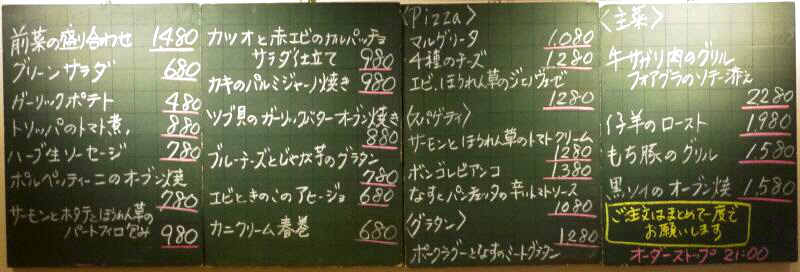 前菜の盛り合わせ 1480
グリーンサラダ 680
ガーリックポテト 480
トリッパのトマト煮 880
ハーブ生ソーセージ 780
ポルペッティーニのオーブン焼
780
サーモンとホタテとほうれん草の
パートフィロ包み 980
カツオと赤エビのカルパッチョ
サラダ仕立て 980
カキのパルミジャーノ焼き 980
ツブ貝のガーリックバターオーブン焼き
880
ブルーチーズとじゃが芋のグラタン
780
エビときのこのアヒージョ 680
カニクリーム春巻 680
〈Pizza〉
マルゲリータ 1080
4種のチーズ 1280
エビ、ほうれん草のジェノヴェーゼ
1280
〈スパゲティ〉
サーモンとほうれん草のトマトクリーム
1280
ボンゴレビアンコ 1380
なすとパンチェッタの辛いトマトソース
1080
〈グラタン〉
1280
ポークラグーとなすのミートグラタン
〈主菜〉
牛サガリ肉のグリル
フォアグラのソテー添え
2280
仔羊のロースト 1980
もち豚のグリル 1,580
黒ソイのオーブン焼 1,580
ご注文はまとめて一度で
お願いします
オーダーストップ 21:00